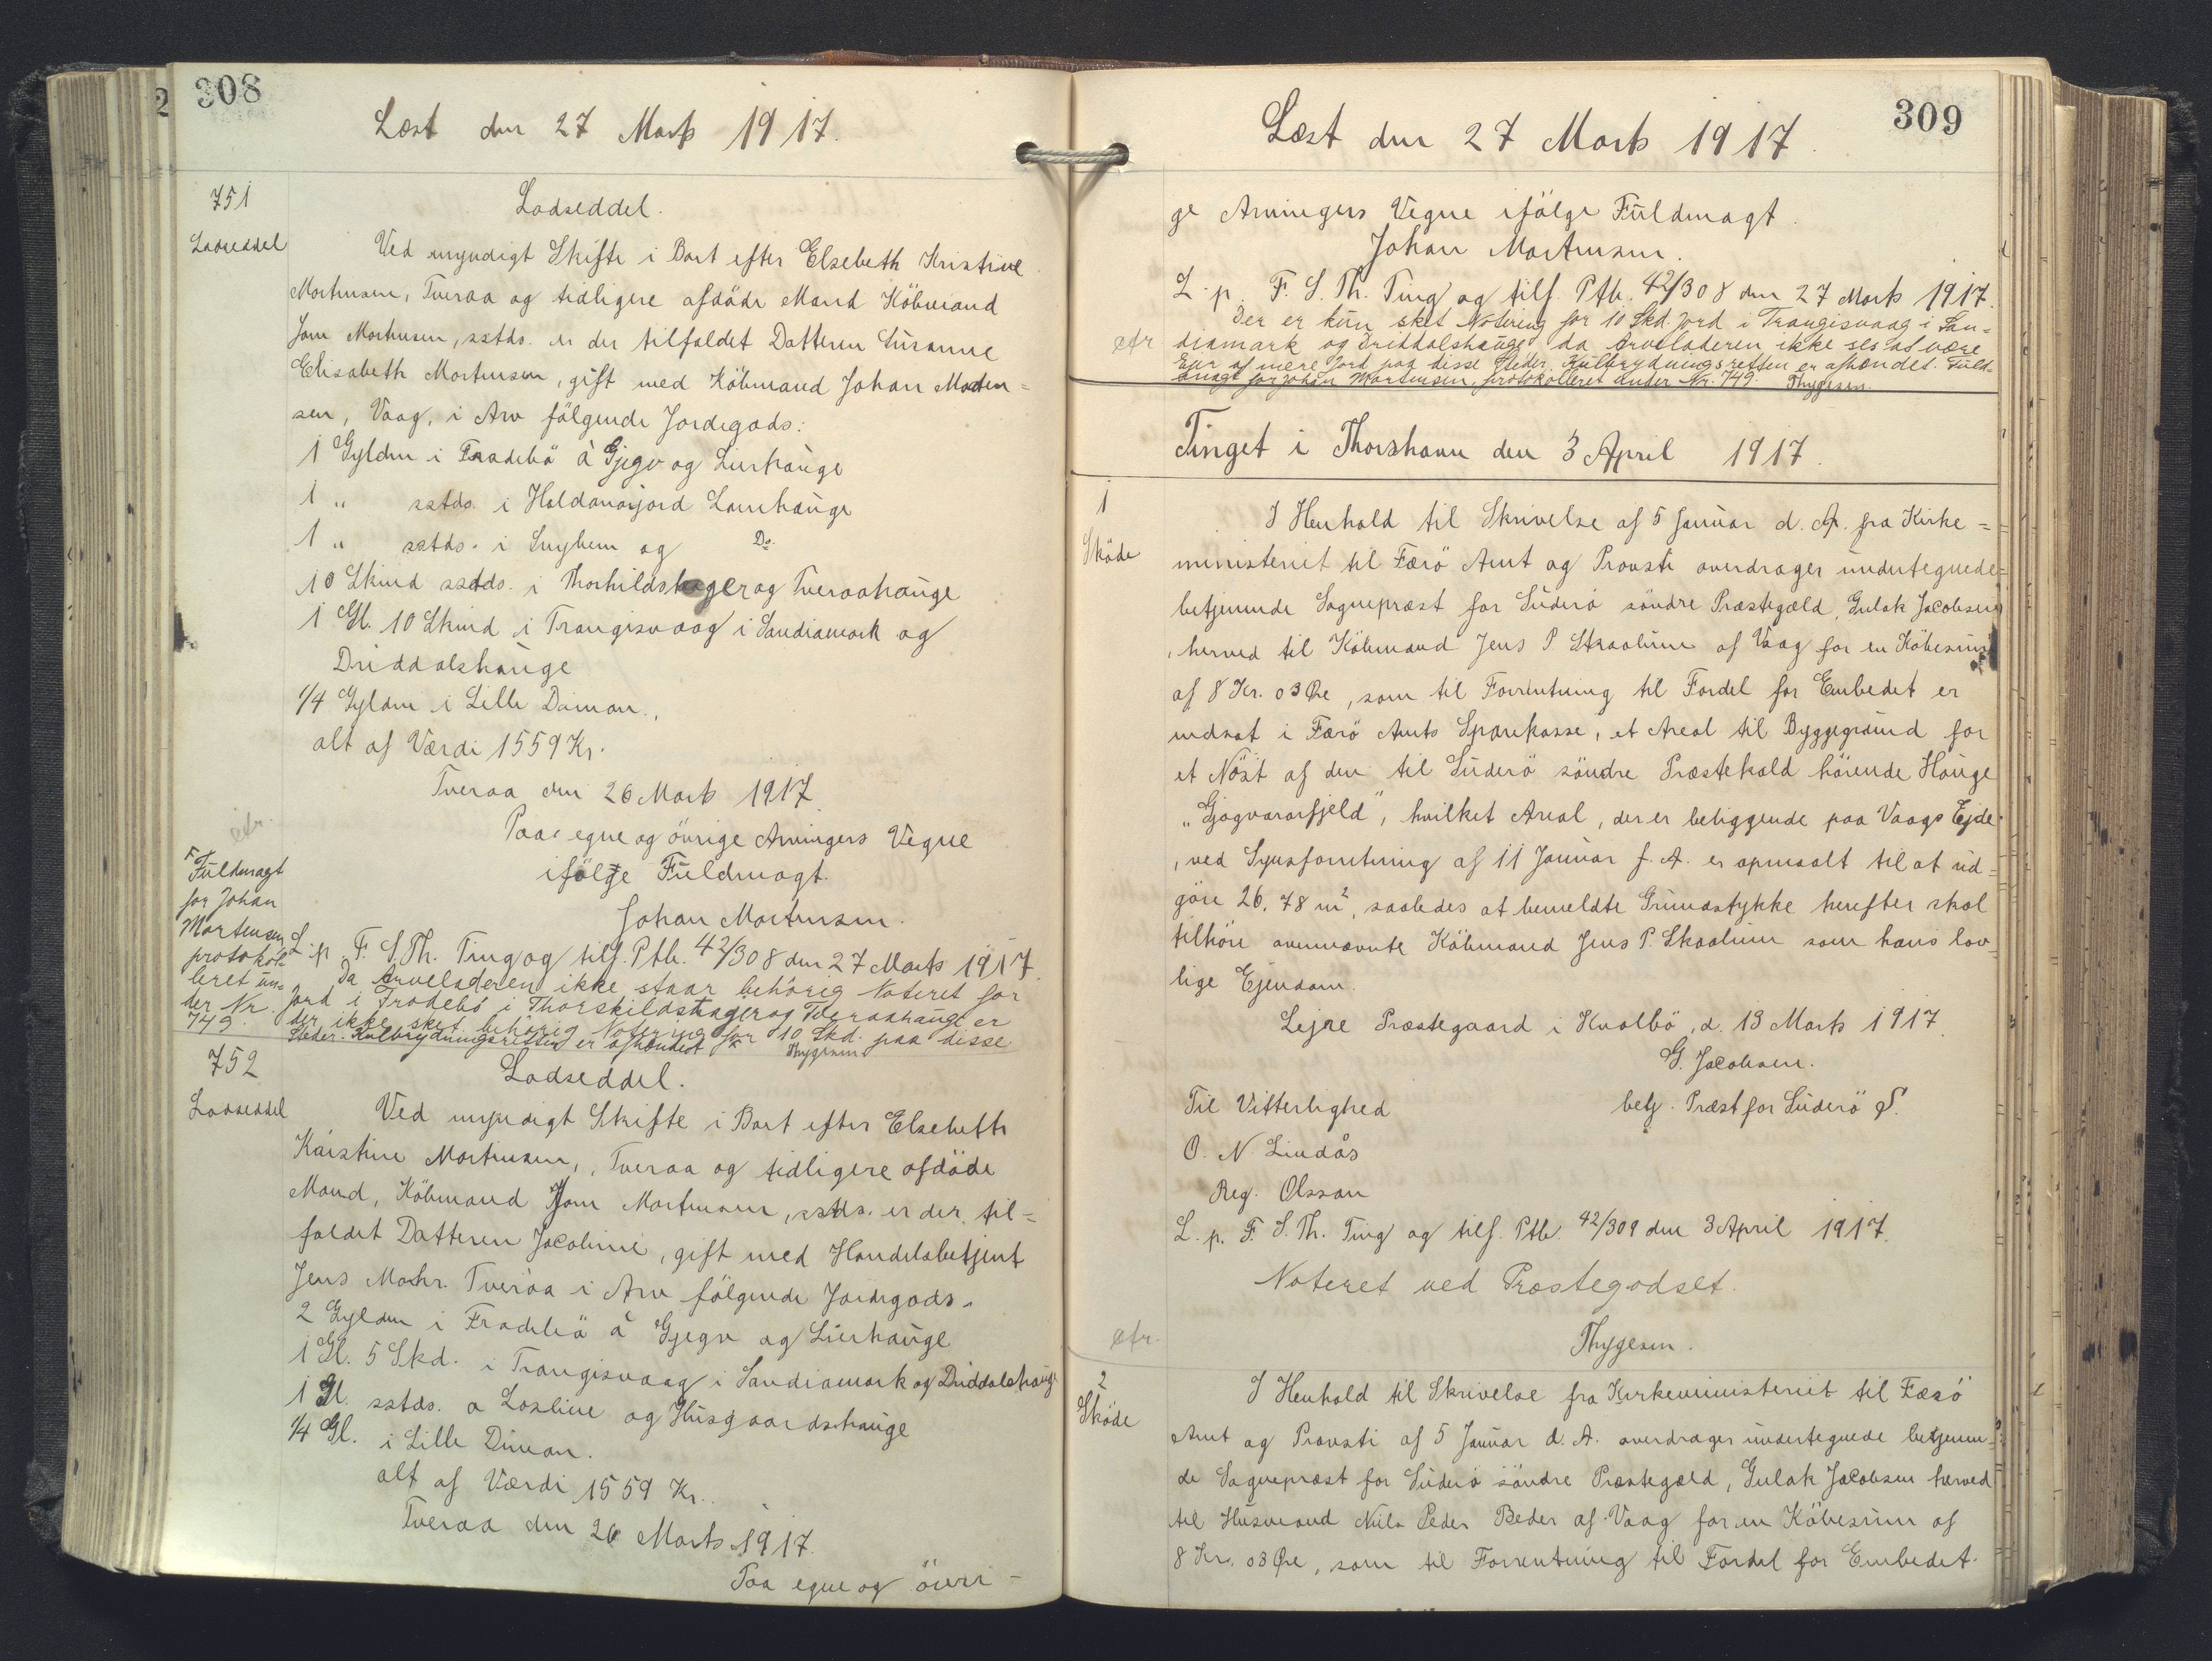 308
Læst den 27 Marts 1917.
751
Lodseddel
Lodseddel.
Ved myndigt Skifte i Boet efter Elsebeth Kristine
Mortensen, Tveraa og tidligere afdöde Mand Köbmand
Jom Mortensen, sstds. er der tilfaldet Datteren Susanne
Elisabeth Mortensen, gift med Köbmand Johan Morten=
sen, Vaag, i Arv fölgende Jordegods:
1 Gylden i Frodebö á Gjegv og Lierhauge
1 " sstds. i Haldanarjord Lamhauge
1 " sstds. i og Do.
10 Skind sstds. i Thorkildshager og Tveraahauge
1 Gl. 10 Skind i Trangisvaag i Sandiamark og
Driddalshauge
1/4 Gylden i Lille Dimon.,
alt af Værdi 1559 Kr.
Tveraa den 26 Marts 1917.
Paa egne og övrige Arvingers Vegne
ifölge Fuldmagt.
Johan Mortensen.
L. p. F. S. Th. Ting og tilf. Ptb. 42/308 den 27 Marts 1917.
Da Arveladeren ikke staar behörig Noteret for
Jord i Frodebö i Thorskildshager og Tveraahauge er
der ikke sket behörig Notering for 10 Skd. paa disse
Steder. Kulbrydningsretten er afhændet Thygesen
cfr.
Fuldmagt
for Johan
Mortensen
protokol=
leret un=
der Nr.
749.
752
Lodseddel
Lodseddel.
Ved myndigt Skifte i Boet efter Elsebeth
Kristine Mortensen, Tveraa og tidligere afdöde
Mand, Köbmand Jom Mortensen, sstds. er der til=
faldet Datteren Jacobine, gift med Handelsbetjent
Jens Mohr. Tveraa i Arv fölgende Jordegods.
2 Gylden i Frodebö á Gjegv og Lierhauge
1 Gl. 5 Skd. i Trangisvaag i Sandiamark og Driddalshauge
1 Gl. sstds. a og Husgaardshauge
1/4 Gl. i Lille Dimon.
alt af Værdi 1559 Kr.
Tveraa den 26 Marts 1917.
Paa egne og övri-
309
Læst den 27 Marts 1917.
ge Arvingers Vegne ifölge Fuldmagt.
Johan Mortensen.
L. p. F. S. Th. Ting og tilf. Ptb. 42/308 den 27 Marts 1917.
Der er kun sket Notering for 10 Skd. Jord i Trangisvaag i San=
cfr diamark og Driddalshauge da Arveladeren ikke ses at være
Ejer af mere Jord paa disse Steder. Kulbrydningsretten er afhændet. Fuld-
magt for Johan Mortensen, protokolleret under Nr. 749. Thygesen.
Tinget i Thorshavn den 3 April 1917.
1
Sköde
I Henhold til Skrivelse af 5 Januar d. A. fra Kirke=
ministeriet til Færö Amt og Provsti overdrager undertegnede=
betjenende Sognepræst for Suderö söndre Præstegæld, Gulak Jacobsen
, herved til Köbmand Jens P. Skaalum af Vaag for en Köbesum
af 8 Kr. 03 Öre, som til Forrentning til Fordel for Embedet er
indsat i Færö Amts Sparekasse, et Areal til Byggegrund for
et Nöst af den til Suderö söndre Præstekald hörende Hauge
"Gjogvararfjeld", hvilket Areal, der er beliggende paa Vaags Ejde
, ved Synsforretning af 11 Januar f. A. er opmaalt til at ud=
göre 26,78 m², saaledes at bemeldte Grundstykke herefter skal
tilhöre ovennævnte Köbmand Jens P. Skaalum som hans lov
lige Ejendom.
Lejre Præstegaard i Kvalbö, d. 13 Marts 1917.
G. Jacobsen.
Til Vitterlighed betj. Præst for Suderö S.
O. N. Lindås
Reg. Olsson
L. p. F. S. Th. Ting og tilf. Ptb. 42/309 den 3 April 1917.
Noteret ved Præstegodset.
cfr.
Thygesen.
2
Sköde
I Henhold til Skrivelse fra Kirkeministeriet til Færö
Amt og Provsti af 5 Januar d. A. overdrager undertegnede betjenen=
de Sognepræst for Suderö söndre Præstegæld, Gulak Jacobsen herved
til Husmand Niels Peder Beder af Vaag for en Köbesum af
8 Kr. 03 Öre, som til Forrentning til Fordel for Embedet.